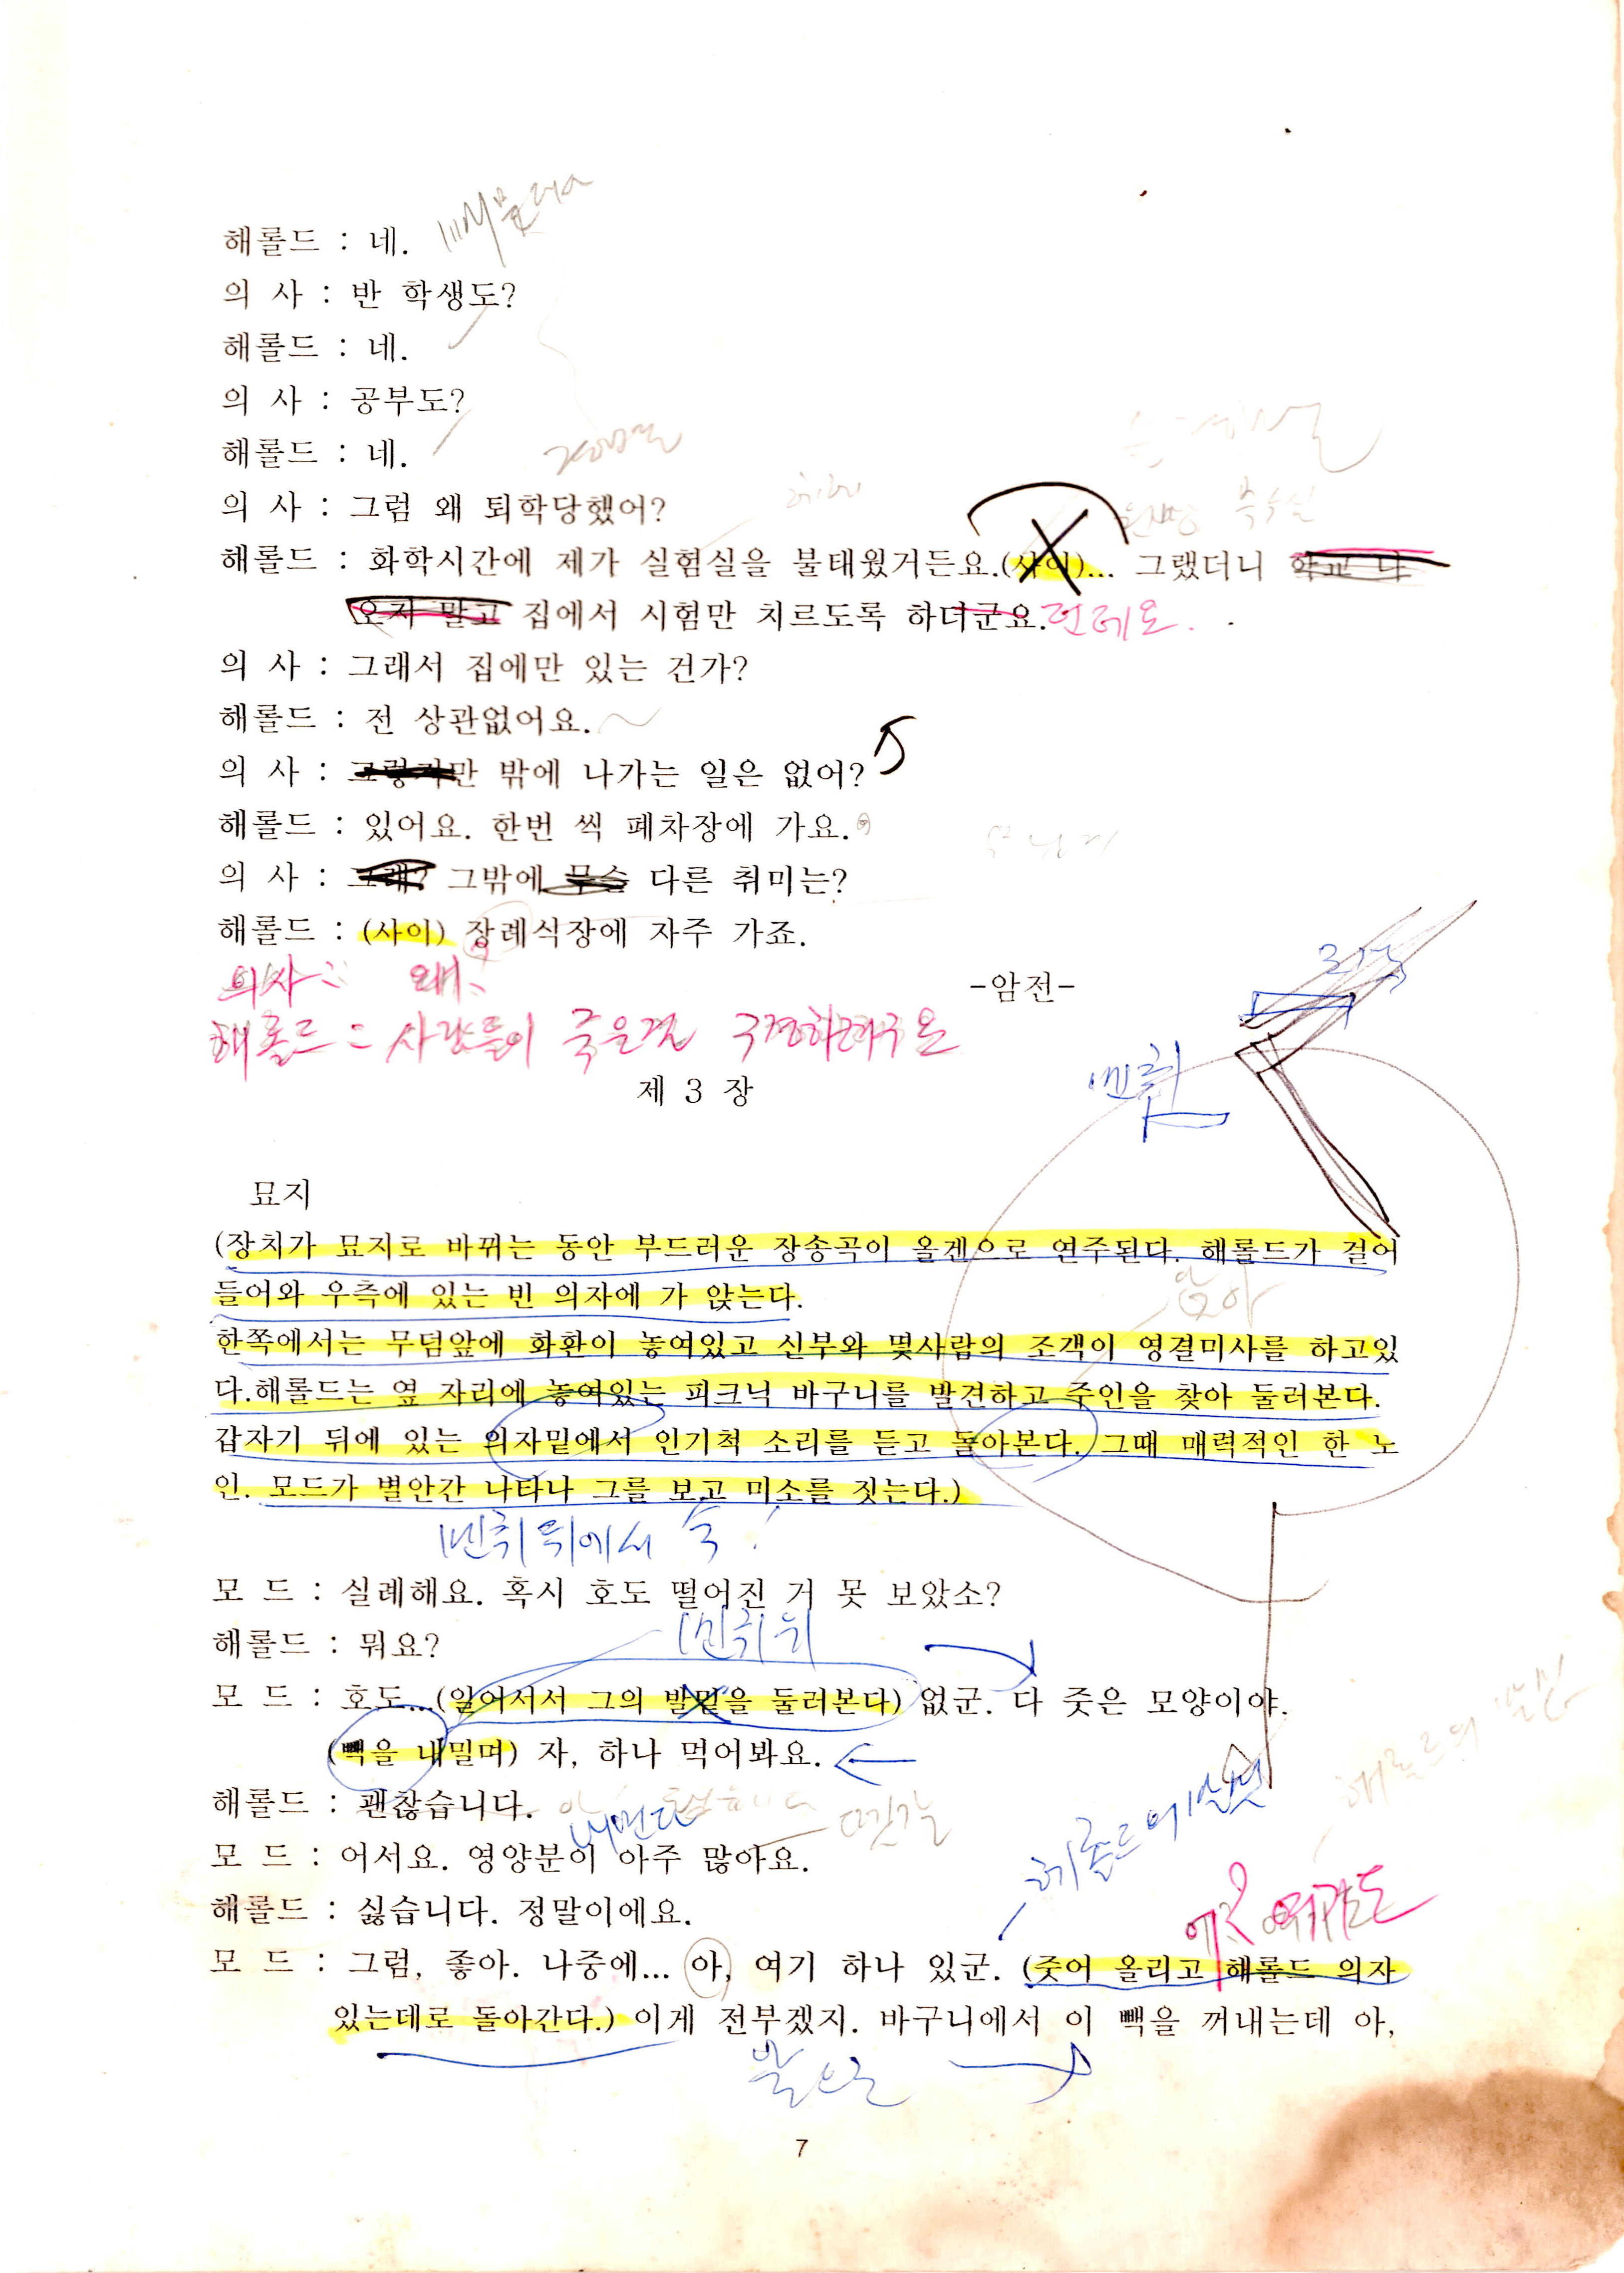 해롤드 : 네.
의 사 : 반 학생도?
해롤드 : 네.
의 사 : 공부도?
해롤드 : 네.
의 사 : 그럼 왜 퇴학당했어?
해롤드 : 화학시간에 제가 실험실을 불태웠거든요.(사이)... 그랬더니 학교 나
오지 말고 집에서 시험만 치르도록 하더군요. 던데요.
의 사 : 그래서 집에만 있는 건가?
해롤드 : 전 상관없어요.
의 사 : 그렇지만 밖에 나가는 일은 없어?
해롤드 : 있어요. 한번 씩 폐차장에 가요.
의 사 : 그래? 그밖에 무슨 다른 취미는?
해롤드 : (사이) 장례식장에 자주 가죠.
의사 : 왜
-암전-
해롤드 : 사람들이 죽은걸 구경하려구요
제 3 장
벤취
묘지
(장치가 묘지로 바뀌는 동안 부드러운 장송곡이 올겐으로 연주된다. 해롤드가 걸어
들어와 우측에 있는 빈 의자에 가 앉는다.
앉아
한쪽에서는 무덤앞에 화환이 놓여있고 신부와 몇사람의 조객이 영결미사를 하고있
다.해롤드는 옆 자리에 놓여있는 피크닉 바구니를 발견하고 주인을 찾아 둘러본다.
갑자기 뒤에 있는 의자밑에서 인기척 소리를 듣고 돌아본다. 그때 매력적인 한 노
인. 모드가 별안간 나타나 그를 보고 미소를 짓는다.)
벤취 뒤에서 쑥!
모 드 : 실례해요. 혹시 호도 떨어진 거 못 보았소?
벤취 위
해롤드 : 뭐요?
모 드 : 호도...(일어서서 그의 발밑을 둘러본다) 없군. 다 줏은 모양이야.
(빽을 내밀며) 자, 하나 먹어봐요.
해롤드 : 괜찮습니다.
모 드 : 어서요. 영양분이 아주 많아요.
해롤드 : 싫습니다. 정말이에요.
모 드 : 그럼, 좋아. 나중에... 아, 여기 하나 있군. (줏어 올리고 해롤드 의자
있는데로 돌아간다.) 이게 전부겠지. 바구니에서 이 빽을 꺼내는데 아,
7